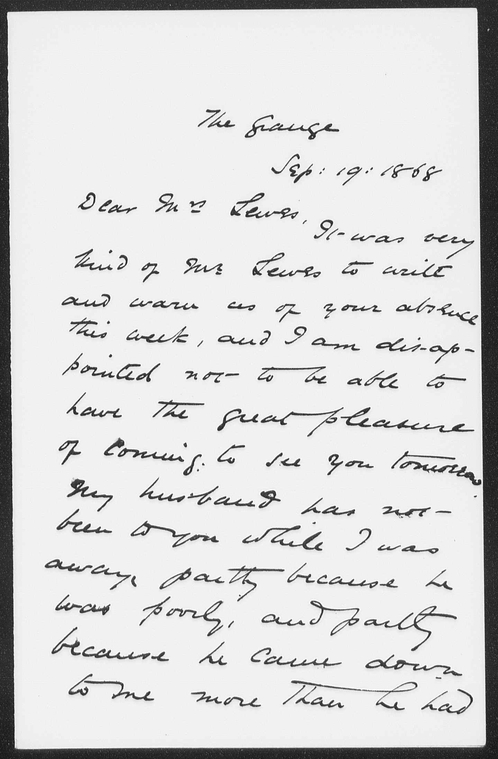 The Grange
Sep: 19: 1868
Dear Mrs Lewes,
It was very
kind of Mr Lewes to write
and warn us of your absence
this week, and I am disap-
pointed not to be able to
have the great pleasure
of coming to see you tomorrow.
My husband has not
been to you while I was
away, partly because he
was poorly, and partly
because he came down
to me more than he had